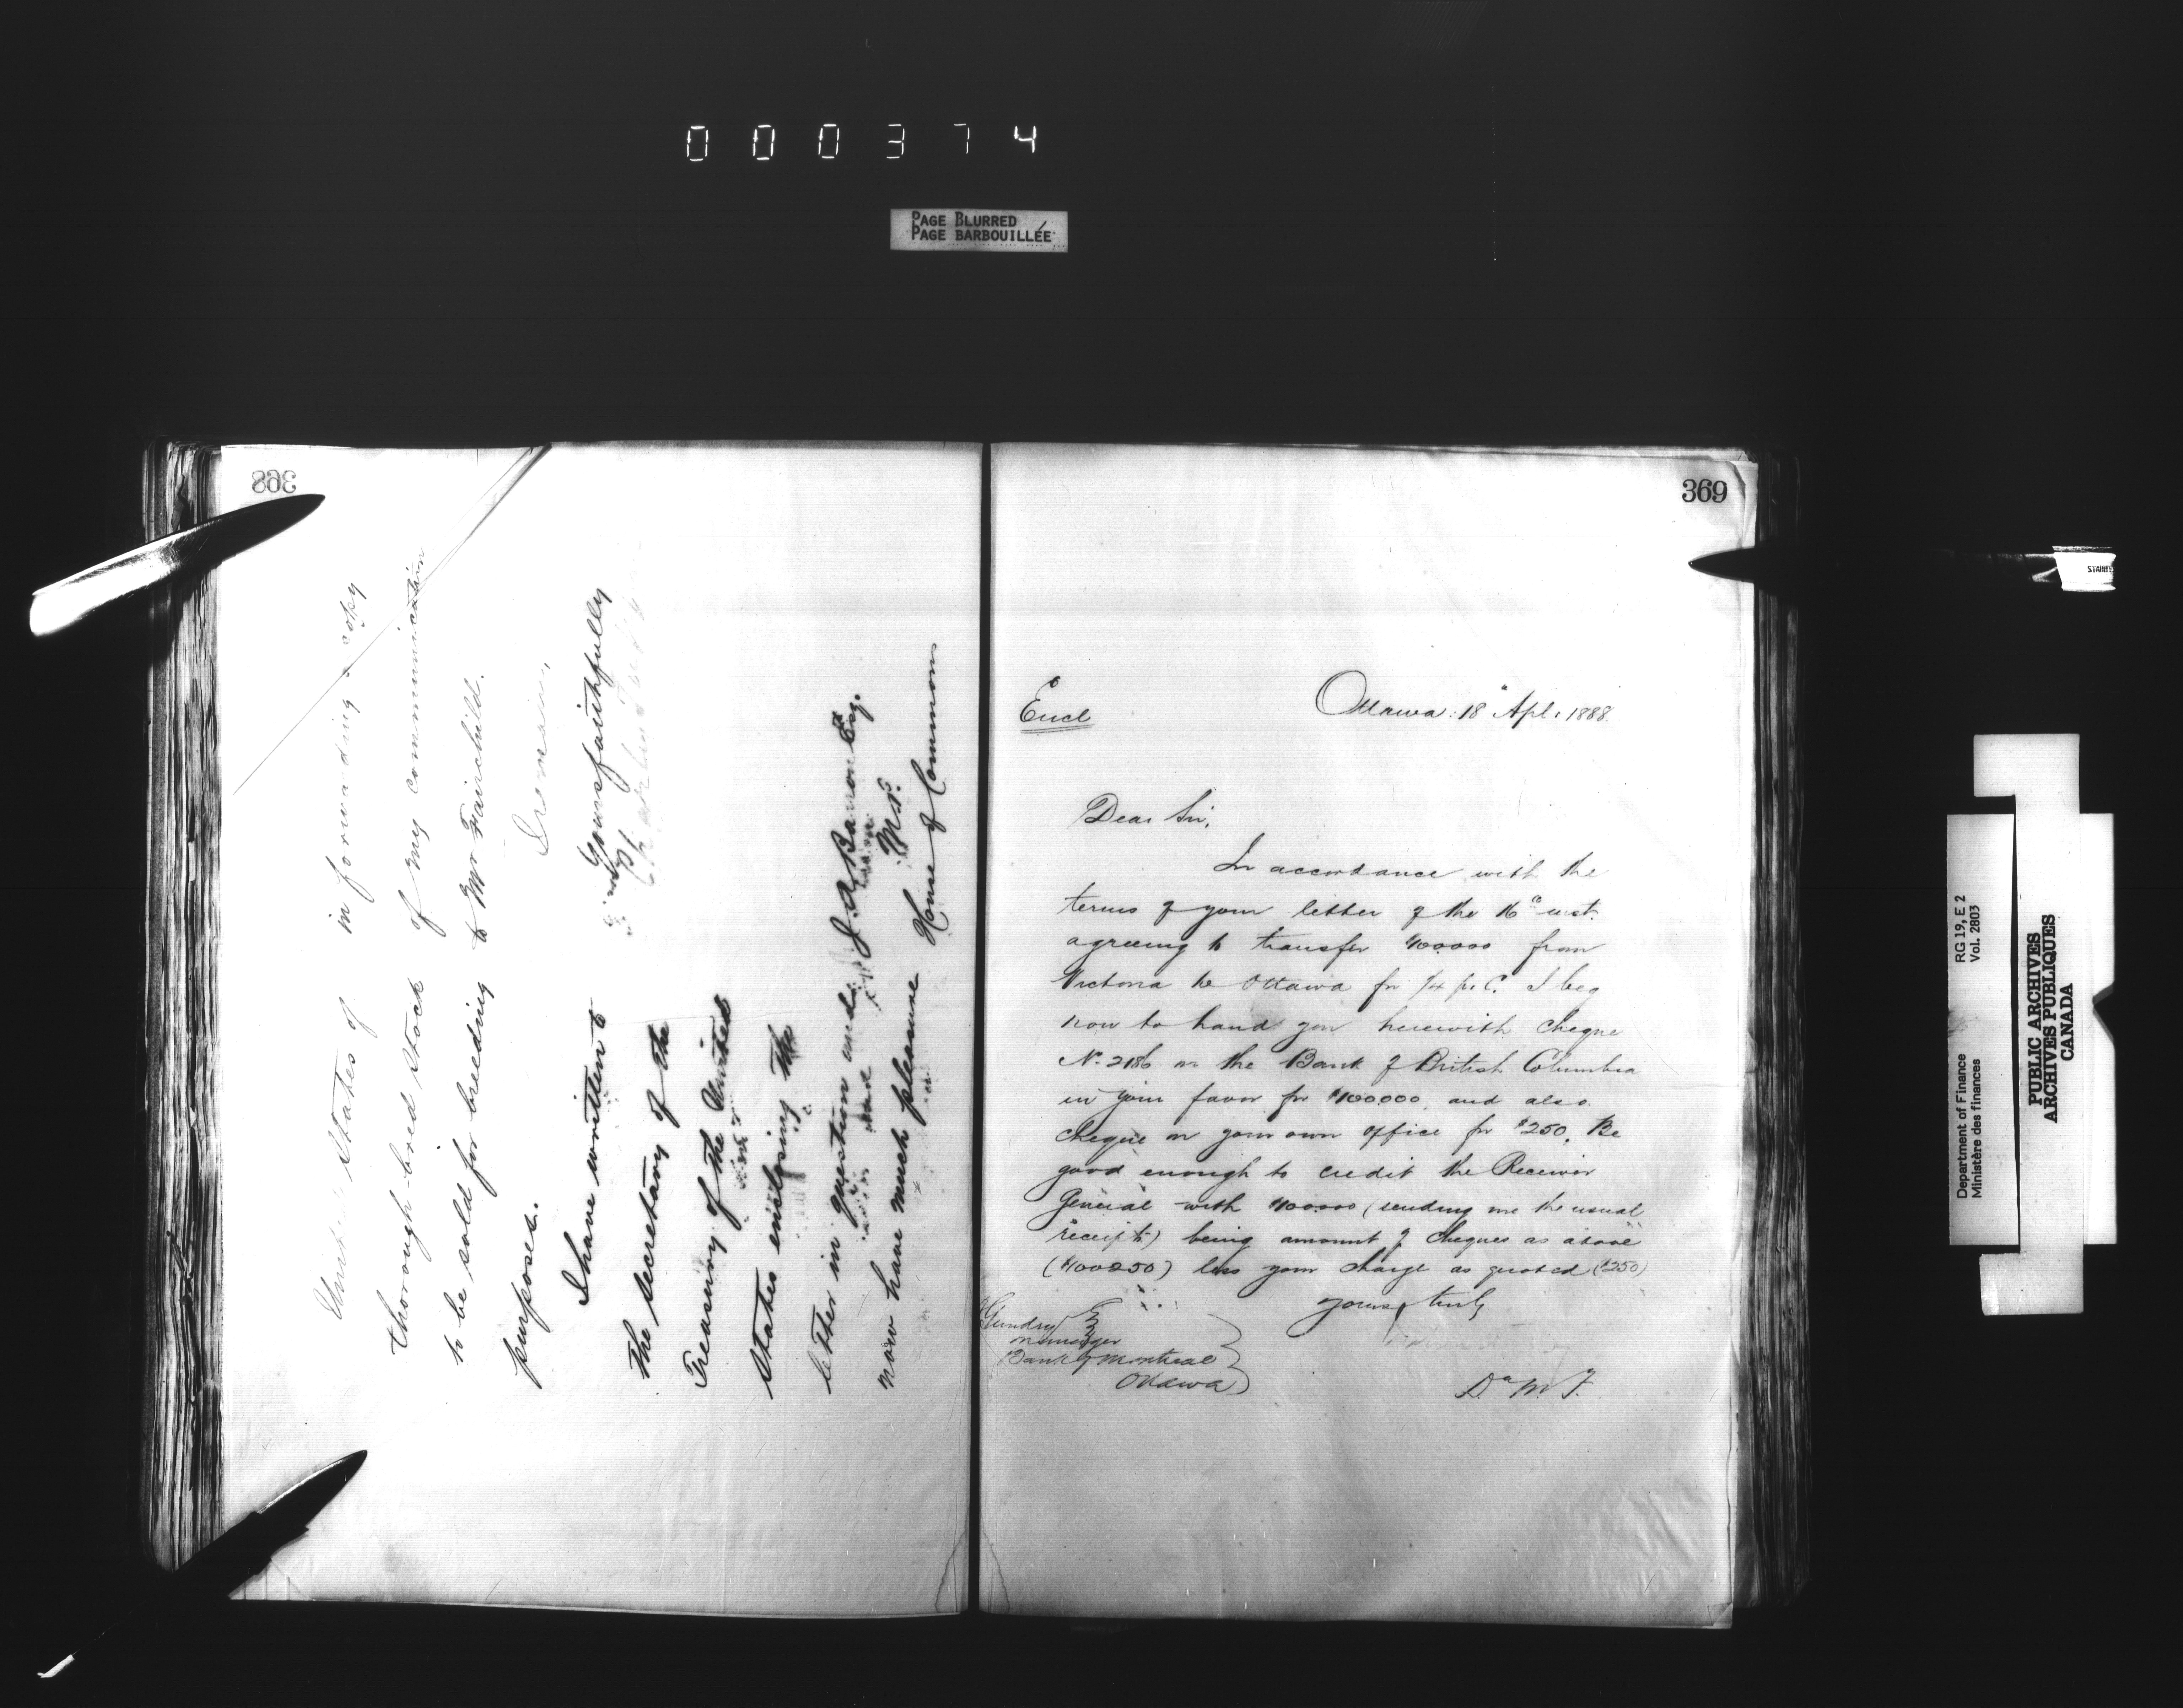 000374
PAGE BLURRED
PAGE BARBOUILLÉE
368
United States of
thorough-bred stock
to be sold for breeding
purposes.
I have written to
the secretary of the
Treasury of the United
States enclosing the
letter in question and
now have much pleasure
in forwarding a copy
of my communication
to Mr Fairchild.
Yours faithfully
J. A. Barron Esq.
M.P.
House of Commons
369
Encl
Ottawa. 18 Apl. 1888.
Dear Sir,
In accordance with the
terms of your letter of the 16 inst.
agreeing to transfer $100.000 from
Victoria to Ottawa for 1/4 p. C. I beg
now to hand you herewith cheque
No. 2186 on the Bank of British Columbia
in your favor for $100.000 and also
cheque on your own office for $250. Be
good enough to credit the Receiver
General with $100.000 (sending me the usual
receipts) being amount of cheques as above
($100250) less your charge as quoted ($250)
Yours truly
D. M. F.
Gundry
Manager
Bank of Montreal
Ottawa
Department of Finance
Ministère des finances
RG 19, E 2
Vol. 2803
PUBLIC ARCHIVES
ARCHIVES PUBLIQUES
CANADA